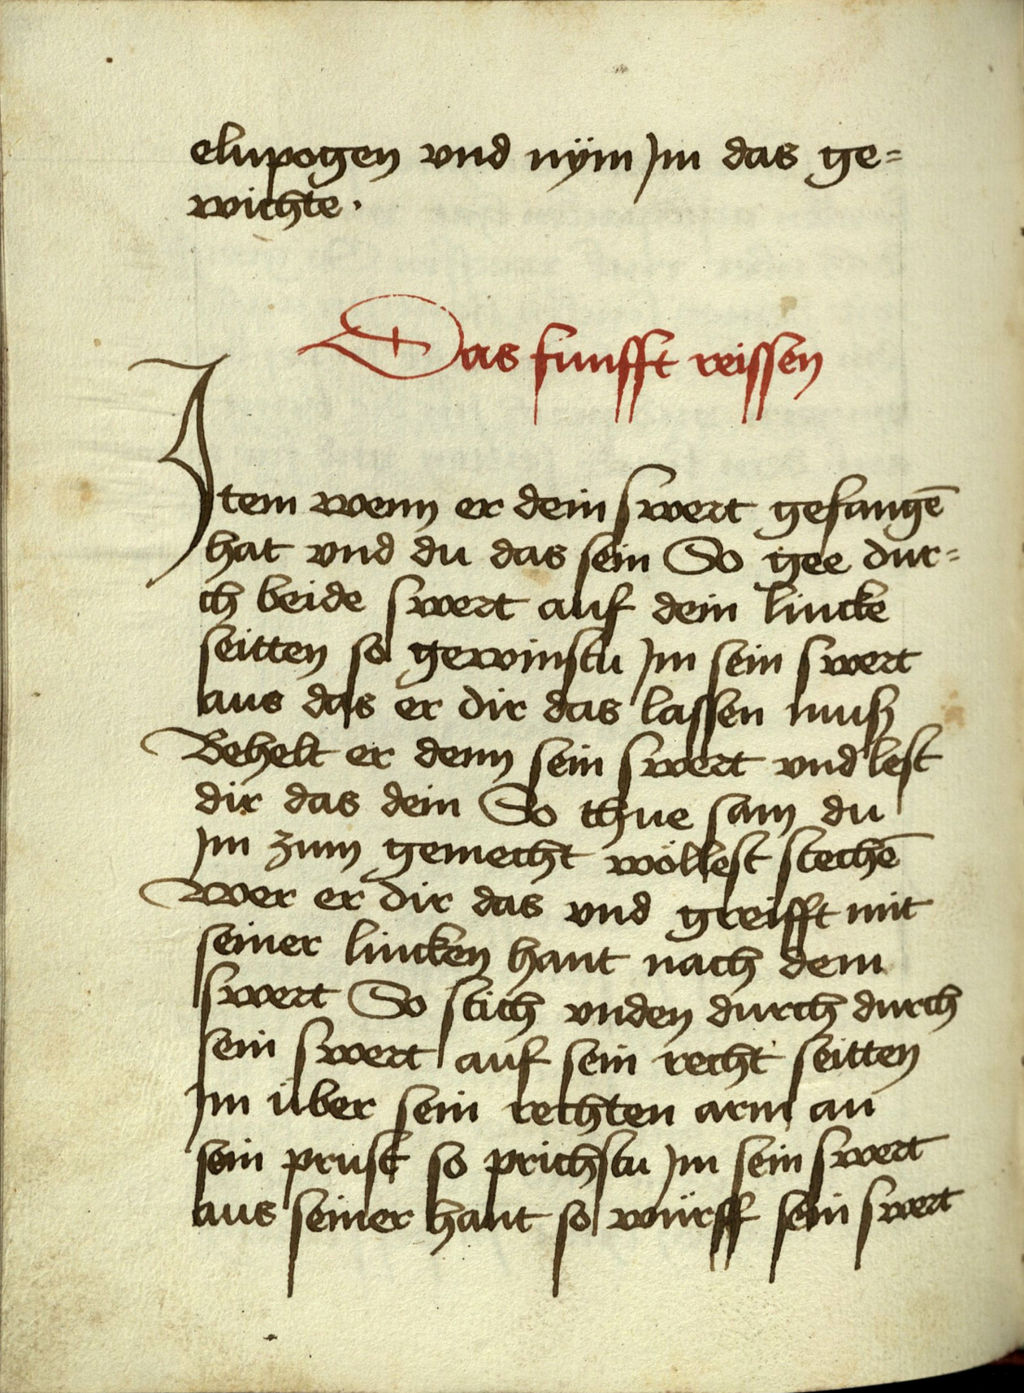 elnpogen vnd nÿm Jm das ge=
wichte ·
Das funfft reissen
Item wenn er dein swert gefangē
hat vnd du das sein So gee dur=
ch beide swert auf dein lincke
seitten so gewinstu Jm sein swert
aus das er dir das lassen muß
Behelt er denn sein swert vnd lest
dir das dein So thue sam du
Jm zum gemecht wöllest stechē
Wer er dir das vnd greifft mit
seiner lincken hant nach dem
swert So stich vnden durch durch
sein swert auf sein recht seitten
Jm über sein rechten arm an
sein prust so prichstu Jm sein swert
aus seiner hant so würff sein swert